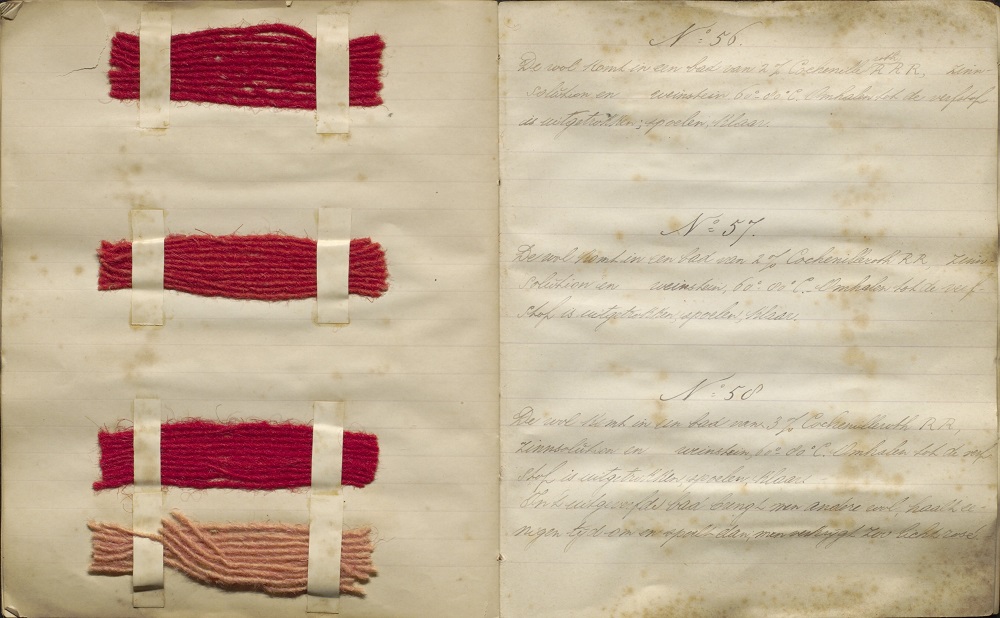 N:º 56.
De wol komt in een bad van 2 % Cochenille roth R R R, Zinn-
solution en weinstein, 60º-80ºC. Omhalen tot de verfstof
is uitgetrokken; spoelen, klaar.
N:º 57.
De wol komt in een bad van 2 % Cochenilleroth R R, Zinn-
solution en weinstein, 60º-80ºC. Omhalen tot de verf-
stof is uitgetrokken, spoelen, klaar.
N:º 58
De wol komt in een bad van 3 % Cochenilleroth R R,
Zinnsolution en weinstein, 60º-80ºC. Omhalen tot de verf
stof is uitgetrokken, spoelen, klaar.
In 't uitgeverfde bad brengt men andere wol, haalt ee-
nigen tijd om en spoelt dan, men verkrijgt zoo licht rose.